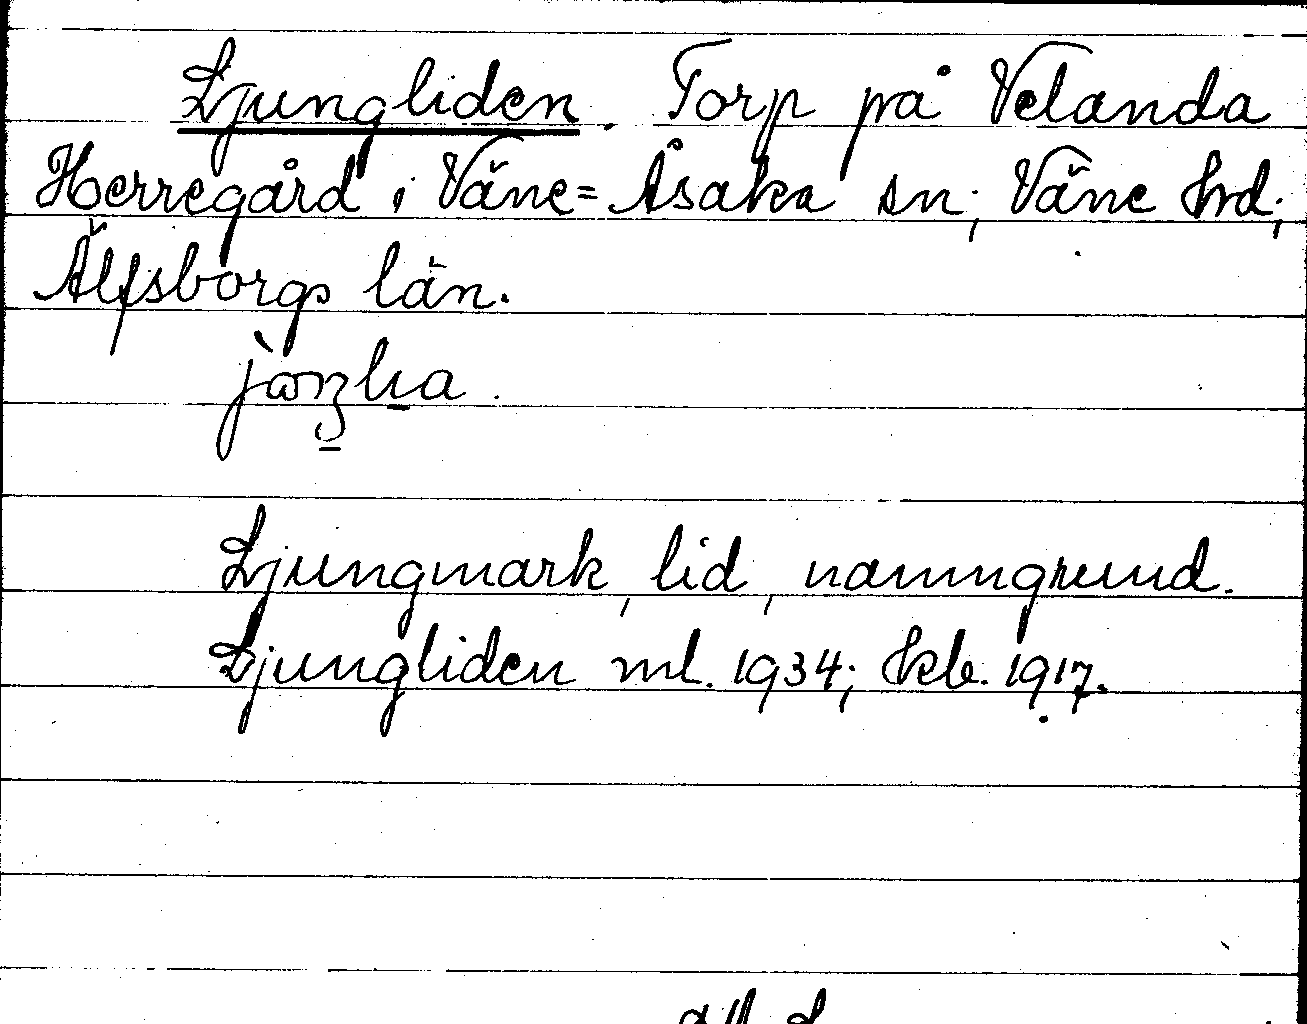 Ljungliden. Torp på Velanda
Herregård i Väne=Åsaka sn; Väne hrd;
Älfsborgs län.
Ljungmark, lid, namngrund.
Ljungliden ml. 1934; kb. 1917.